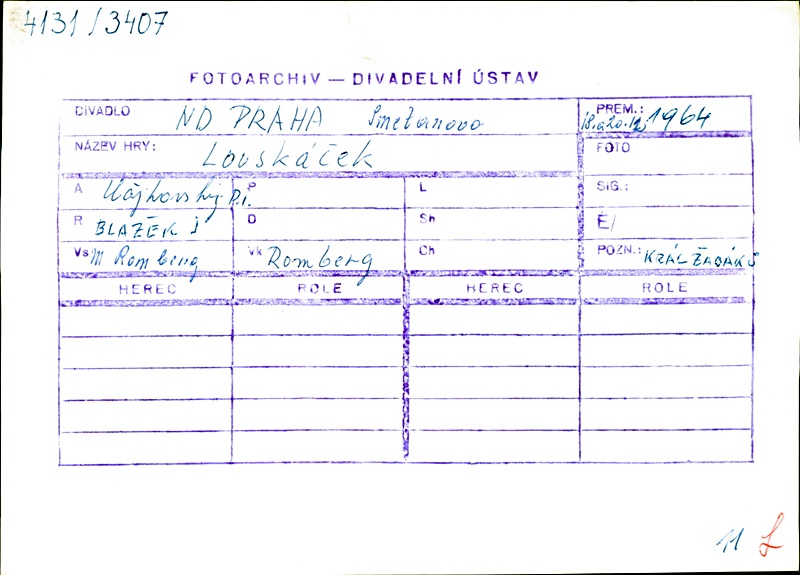 4131/3407
FOTOARCHIV — DIVADELNÍ ÚSTAV
DIVADLO ND PRAHA Smetanovo PREM.: 18. a 20. 12. 1964
NÁZEV HRY: Louskáček FOTO
A Čajkovskij P.I. P L SIG.:
R BLAŽEK J D Sh Č/
Vs M Romberg Vk Romberg Ch POZN.: KRÁL ŽABÁK
HEREC ROLE HEREC ROLE
11